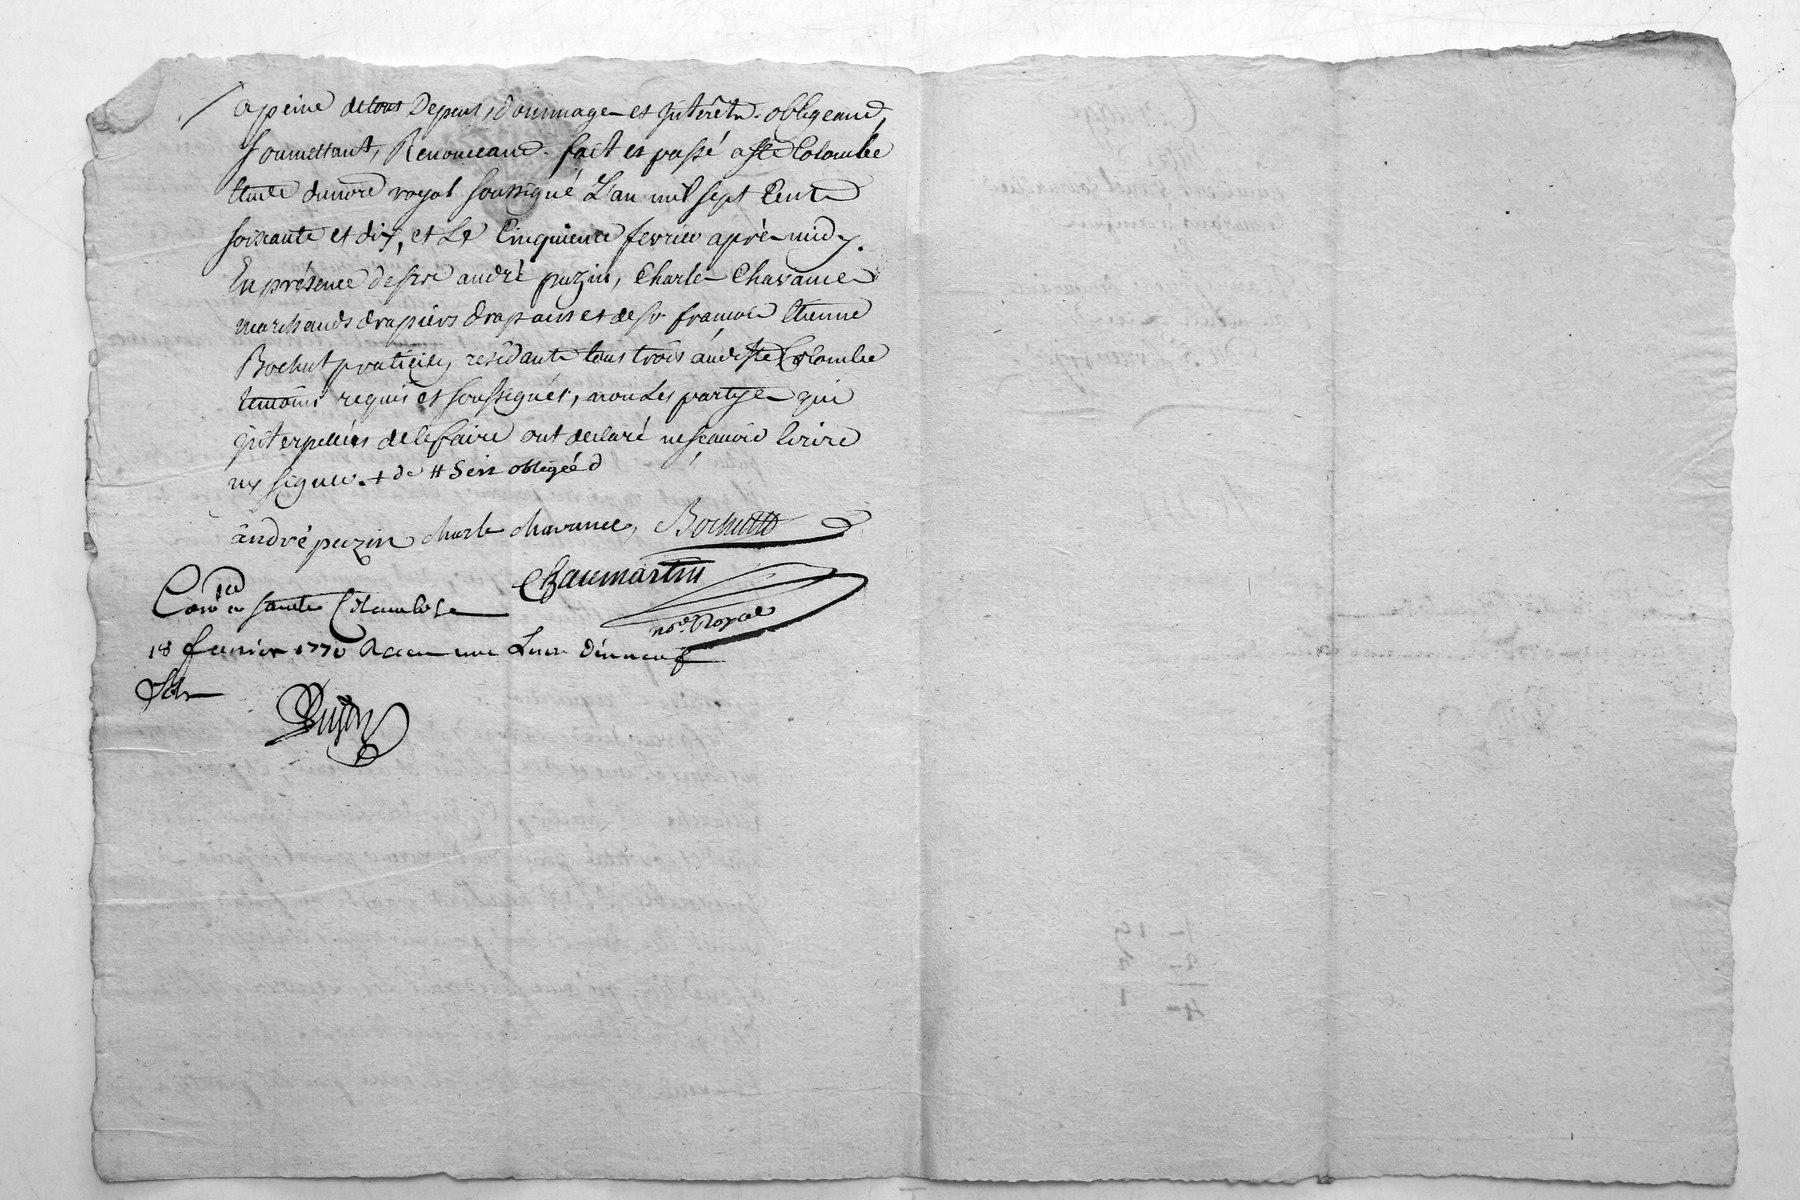 a peine de tous Depens, dommage et jnterêts. obligeant,
soumettant, Renonceant. fait et passé a Ste Colombe
Etude du nore royal soussigné L'an mil sept Cent
soixante et dix, et Le Cinquieme fevrier après midy.
En présence de sire andré puzin, Charle Chavance
marchands drapiers drapans et de sr. francois Etienne
Bochut praticien residants tous trois audt Ste Colombe
temoins requis et soussignés, non Les partyes qui
jnterpellées de le faire ont declaré ne scavoir Ecrire
ny signer. + de # Sera obligée
andré puzin charle chavance, Bochutt
Chaumartin
nore. Royal
Conlé a sainte Colombe
18 fevrier 1770 Recu une Livre dixneuf
Sols